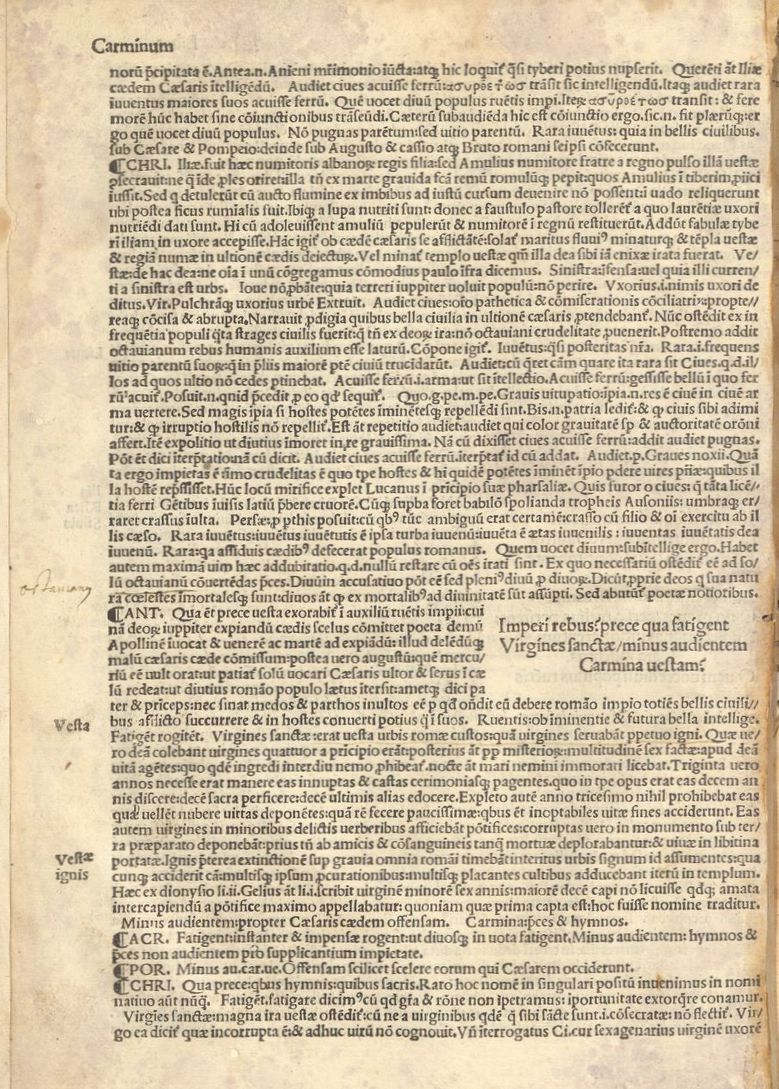 Carminum
norũ p̃cipitata ẽ. Antea.n. Anieni mr̃imonio iũcta: atq; hic loquit̃ q̃si tyberi potius nupserit. Querẽti ãt Iliæ
cædem Cæsaris ĩtelligẽdũ. Audiet ciues acuisse ferrũ: trãsit sic intelligendũ. Itaq; audiet rara
iuuentus maiores suos acuisse ferrũ. Quẽ uocet diuũ populus ruẽtis impi. Iteꝝ transit: & fere
morẽ hũc habet sine cõiunctionibus trãseũdi. Cæterũ subaudiẽda hic est cõiunctio ergo. sic.n. fit plærũq;: er
go quẽ uocet diuũ populus. Nõ pugnas parẽtum: sed uitio parentũ. Rara iuuẽtus: quia in bellis ciuilibus.
sub Cæsare & Pompeio: deinde sub Augusto & cassio atq; Bruto romani seipsi cõfecerunt.
¶CHRI. Iliæ. fuit hæc numitoris albanoꝝ regis filia: sed Amulius numitore fratre a regno pulso illã uestæ
ꝯsecrauit: ne q̃ ĩde ꝓles oriret: illa tñ ex marte grauida fcã remũ romulũq; pepit: quos Amulius ĩ tiberim ꝓiici
iussit. Sed q detulerũt cũ aucto flumine ex imbibus ad iustũ cursum deuenire nõ possent: ĩ uado reliquerunt
ubi postea ficus rumialis fuit. Ibiq; a lupa nutriti sunt: donec a faustulo pastore tollerẽt̃ a quo laurẽtiæ uxori
nutriẽdi dati sunt. Hi cũ adoleuissent amuliũ pepulerũt & numitorẽ ĩ regnũ restituerũt. Addũt fabulæ tybe
ri iliam in uxorẽ accepisse. Hãc igit̃ ob cædẽ cæsaris se afflictãtẽ: solat̃ maritus fluui⁹ minaturq; & tẽpla uestæ
& regiã numæ in ultionẽ cædis deiecturꝝ. Vel minat̃ templo uestæ qm̃ illa dea sibi iã cnixæ irata fuerat. Ve/
stæ: de hac dea: ne oĩa ĩ unũ cõgregamus cõmodius paulo ĩfra dicemus. Sinistra: ĩfensa: uel quia illi curren/
ti a sinistra est urbs. Ioue nõ ꝓbãte: quia terreri iuppiter uoluit populũ: nõ perire. Vxorius. i. nimis uxori de
ditus. Vir. Pulchrãq; uxorius urbẽ Extruit. Audiet ciues: oro pathetica & cõmiserationis cõciliatrix: ꝓpte//
reaq; cõcisa & abrupta. Narrauit ꝓdigia quibus bella ciuilia in ultionẽ cæsaris ꝓtendebant̃. Nũc ostẽdit ex in
frequẽtia populi q̃ta strages ciuilis fuerit: q̃ tñ ex deoꝝ ira: nõ octauiani crudelitate ꝓuenerit. Postremo addit
octauianum rebus humanis auxilium esse laturũ. Cõpone igit̃. Iuuẽtus: q̃si posteritas nr̃a. Rara. i. frequens
uitio parentũ suoꝝ: q̃ in p̃liis maiorẽ ptẽ ciuiũ trucidarũt. Audiet: cũ q̃ret cãm quare ita rara sit Ciues. q.d. il/
los ad quos ultio nõ cedes ptinebat. Acuisse ferrũ. i. arma: ut sit ĩtellectio. Acuisse ferrũ: gessisse bellũ ĩ quo fer
rũ acuit̃. Posuit.n. quid p̃cedit ꝓ eo qđ sequit̃. Quo. g. pe. m. pe. Grauis uitupatio: ĩpia.n. res ẽ ciuẽ in ciuẽ ar
ma uertere. Sed magis ĩpia si hostes potẽtes ĩminẽtesq; repellẽdi sint. Bis.n. patria ledit̃: & ꝙ ciuis sibi adimi
tur: & ꝙ irruptio hostilis nõ repellit̃. Est ãt repetitio audiet: audiet qui color grauitatẽ sp & auctoritatẽ orõni
affert. Itẽ expolitio ut diutius ĩmoret in, re grauissima. Nã cũ dixisset ciues acuisse ferrũ: addit audiet pugnas.
Põt ẽt dici ĩterp̃tationã cũ dicit. Audiet ciues acuisse ferrũ. ĩterp̃tat̃ id cũ addat. Audiet. p. Graues noxii. Quã
ta ergo impietas ẽ ĩmo crudelitas ẽ quo tpe hostes & hi quidẽ potẽtes ĩminẽt ĩpio pdere uires p̃iiæ: quibus il
la hostẽ rep̃ssisset. Hũc locũ mirifice explet Lucanus ĩ principio suæ pharsaliæ. Quis furor o ciues: q̃ tãta licẽ/
tia ferri Gẽtibus ĩuisis latiũ p̃bere cruorẽ. Cũq; supba foret babilõ spolianda tropheis Ausoniis: umbraq; er/
raret crassus ĩulta. Persæ: ꝓ pthis posuit: cũ qb⁹ tũc ambiguũ erat certamẽ: crasso cũ filio & oĩ exercitu ab il
lis cæso. Rara iuuẽtus: iuuẽtus iuuẽtutis ẽ ipsa turba iuuenũ: iuuẽta ẽ ætas iuuenilis: iuuentas iuuẽtatis dea
iuuenũ. Rara: qa assiduis cædib⁹ defecerat populus romanus. Quem uocet diuum: subĩtellige ergo. Habet
autem maximã uim hæc addubitatio. q.d. nullũ restare cũ oẽs irati sint. Ex quo necessatiũ ostẽdit̃ eẽ ad so/
lũ octauianũ cõuertẽdas p̃ces. Diuũ in accusatiuo põt eẽ sed pleni⁹ diuũ ꝓ diuoꝝ. Dicũt̃ ꝓprie deos q sua natu
ra cœlestes ĩmortalesq; sunt: diuos ãt ꝙ ex mortalib⁹ ad diuinitatẽ sũt assũpti. Sed abutũt̃ poetæ notioribus.
¶ANT. Qua ẽt prece uesta exorabit̃ ĩ auxiliũ ruẽtis impii: cui
nã deoꝝ iuppiter expiandũ cædis scelus cõmittet poeta demũ
Apollinẽ ĩuocat & uenerẽ ac martẽ ad expiãdũ: illud delẽdũq;
malũ cæsaris cæde cõmissum: postea uero augustũ: quẽ mercu/
riũ eẽ uult orat: ut patiat̃ solũ uocari Cæsaris ultor & serus ĩ cæ
lũ redeat: ut diutius romão populo lætus ĩtersit: ametq; dici pa
Imperi rebus? prece qua fatigent
Virgines sanctæ/minus audientem
Carmina uestam?
ter & p̃riceps: nec sinat medos & parthos inultos eẽ p qđ oñdit eũ debere romão impio totiẽs bellis ciuili//
bus afflicto succurrere & in hostes conuerti potius q̃ ĩ suos. Ruentis: ob iminentie & futura bella intellige.
Fatigẽt rogitẽt. Virgines sanctæ: erat uesta urbis romæ custos: quã uirgines seruabãt ppetuo igni. Quæ ue/
ro deã colebant uirgines quattuor a p̃ricipio erãt: posterius ãt pp misterioꝝ: multitudinẽ sex factæ: apud deã
uitã agẽtes: quo qdẽ ingredi interdiu nemo ꝓhibeat̃. nocte ãt mari nemini immorari licebat. Triginta uero
annos necesse erat manere eas innuptas & castas cerimoniasq; pagentes. quo in tpe opus erat eas decem an
nis discere: decẽ sacra perficere: decẽ ultimis alias edocere. Expleto autẽ anno tricesimo nihil prohibebat eas
quæ uellẽt nubere uittas deponẽtes: quã rẽ fecere paucissimæ: qbus ẽt inoptabiles uitæ fines acciderunt. Eas
autem uirgines in minoribus delictis uerberibus afficiebãt põtifices: corruptas uero in monumento sub ter/
ra præparato deponebãt: prius tñ ab amicis & cõsanguineis tanq̃ mortuæ deplorabantur: & uiuæ in libitina
portatæ. Ignis p̃terea extinctionẽ sup grauia omnia romãi timebãt: interitus urbis signum id assumentes: qua
cunq; acciderit cã: multisq; ipsum ꝓcurationibus: multisq; placantes cultibus adducebant iterũ in templum.
Hæc ex dionysio li. ii. Gelius ãt li. i. scribit uirginẽ minorẽ sex annis: maiorẽ decẽ capi nõ licuisse qdq; amata
intercapiendũ a põtifice maximo appellabatur: quoniam quæ prima capta est: hoc fuisse nomine traditur.
Minus audientem: propter Cæsaris cædem offensam. Carmina: p̃ces & hymnos.
¶ACR. Fatigent: instanter & impensæ rogent: ut diuosq; in uota fatigent. Minus audientem: hymnos &
p̃ces non audientem pro supplicantium impietate.
¶POR. Minus au. car. ue. Offensam scilicet scelere eorum qui Cæsarem occiderunt.
¶CHRI. Qua prece: qbus hymnis: quibus sacris. Raro hoc nomẽ in singulari positũ inuenimus in nomi
natiuo aũt nũq̃. Fatigẽt. fatigare dicim⁹ cũ qd gr̃a & rõne non ĩpetramus: ĩportunitate extorq̃re conamur.
Virgĩes sanctæ: magna ira uestæ ostẽdit̃: cũ ne a uirginibus qdẽ q̃ sibi sãcte sunt. i. cõsecratæ: nõ flectit̃. Vir/
go ea dicit̃ quæ incorrupta ẽ: & adhuc uirũ nõ cognouit. Vñ ĩterrogatus Ci. cur sexagenarius uirginẽ uxorẽ
Vesta
Vestæ
ignis